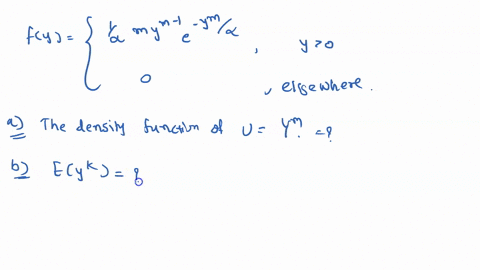 f(y) = { 1/α m y^{m-1} e^{-y^m/α} , y>0
0 , elsewhere.
a) The density function of U = Y^m = ?
b) E(y^k) = ?